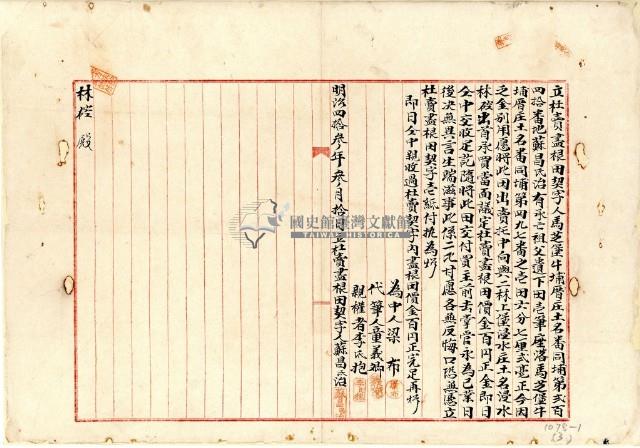 立杜賣盡根田契字人馬芝堡牛埔厝庄土名番同埔第貳百
四拾番地蘇昌氏治有承亡祖父遺下田壱筆座落馬芝堡牛
埔厝庄土名番同埔第四九七番之壱田六分七厘弐毫正今因
乏金別用愿將此田出賣托中向與二林上堡浸水庄土名浸水
林硿出首承買當面議定杜賣盡根田價金百円正金即日
仝中交收足訖隨將此田交付買主前去掌管永為己業日
後決無異言生端滋事此係二比甘愿各無反悔口恐無憑立
杜賣盡根田契字壱紙付执為炤
即日仝中親收過杜賣契字內盡根田價金百円正完足再炤
為中人梁布
代筆人童義
親權者李氏抱
明治四拾叁年叁月拾日立杜賣盡根田契字人蘇昌氏治
林硿殿
國史館臺灣文獻館
TAIWAN HISTORICA
1078-1
(3)